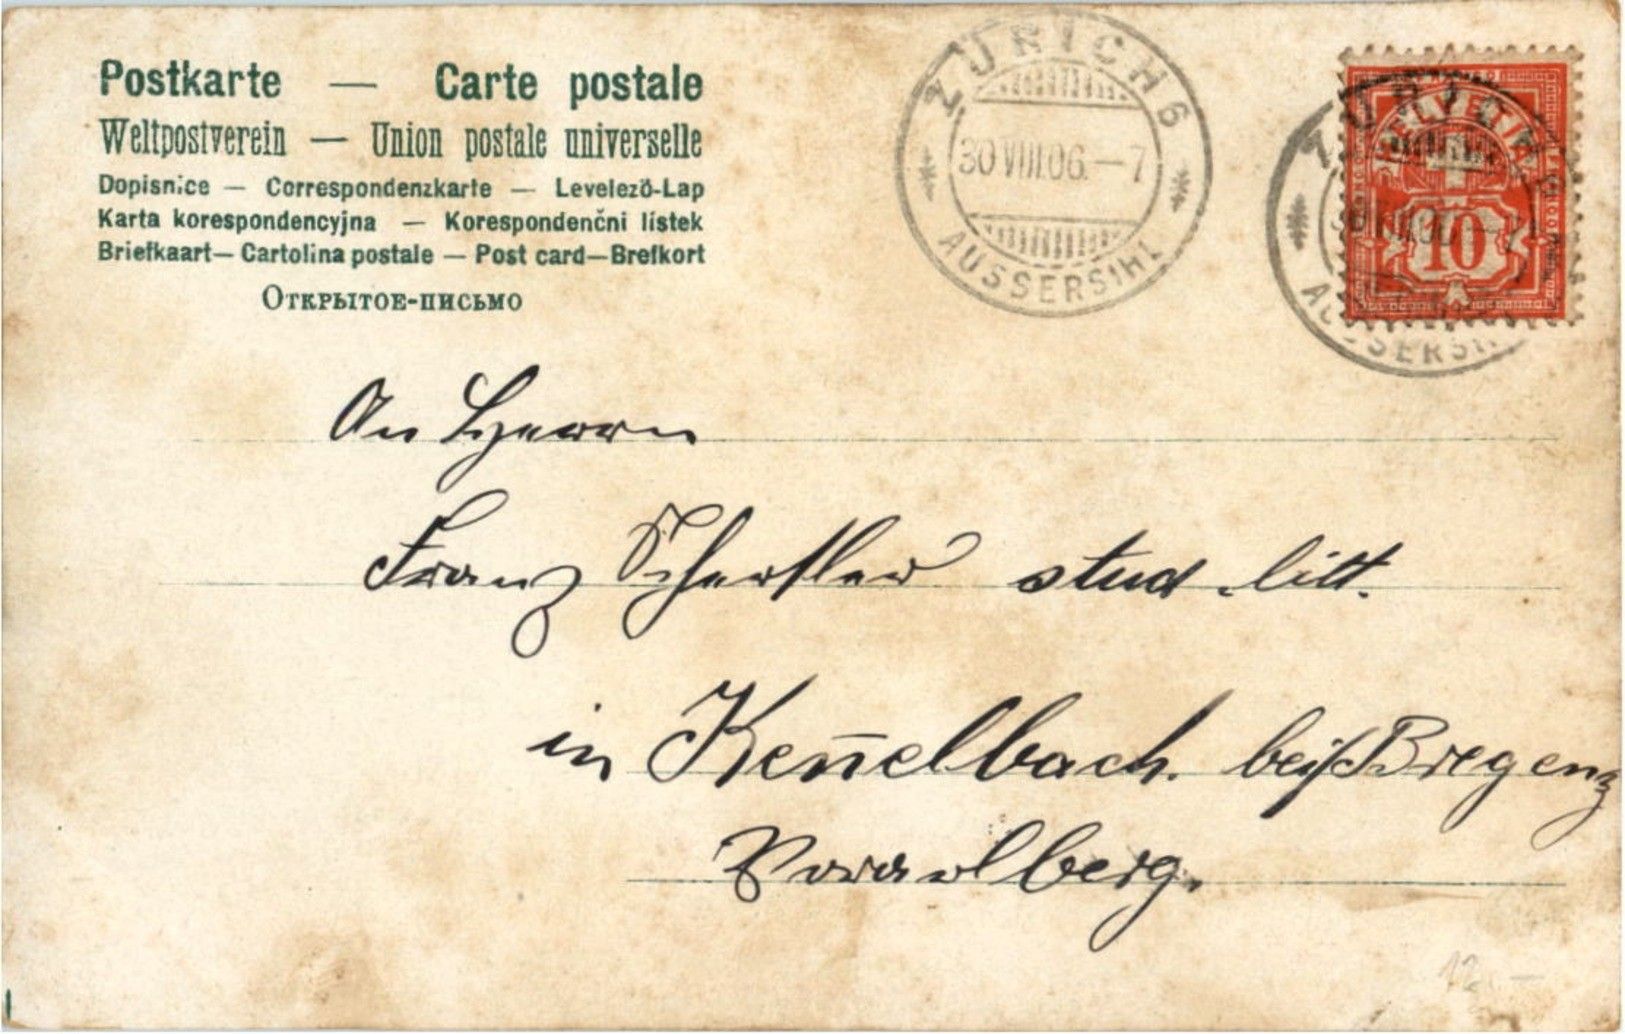 Postkarte — Carte postale
Weltpostverein — Union postale universelle
Dopisnice — Correspondenzkarte — Levelező-Lap
Karta korespondencyjna — Korespondenčni listek
Briefkaart — Cartolina postale — Post card — Brefkort
Открытое-письмо
ZÜRICH 6
30 VIII.06.—7
AUSSERSIHL
ZÜRICH
HELVETIA
10
AUSSERSIHL
An Herrn
Franz Schertler stud. litt.
in Keñelbach. bei Bregenz
Vorarlberg.
12.—